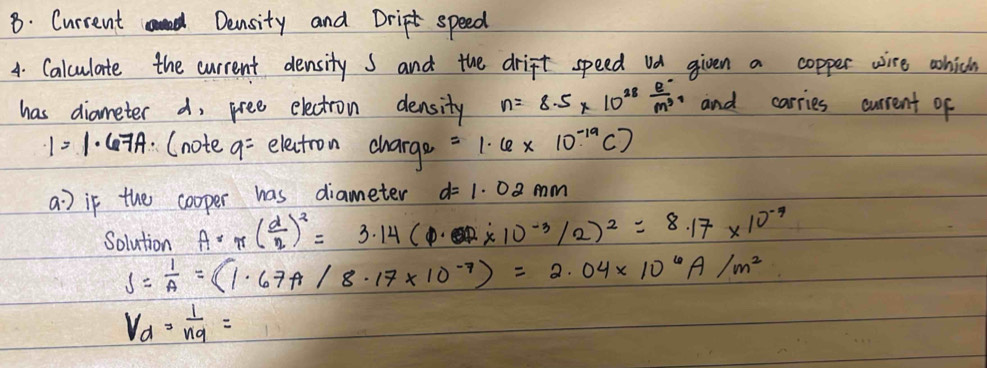 B. Current Density and Drift speed
4. Calculate the current density J and the drift speed vd given a copper wire which
has diameter d, free electron density n = 8.5 x 10^28 e⁻/m³, and carries current of
I = 1.67A. (note q = electron charge = 1.6 x 10^-19 C)
a.) if the cooper has diameter d = 1.02 mm
Solution A = π(d/2)² = 3.14 ( x 10^-3 /2)² = 8.17 x 10^-7
J = I/A = (1.67A / 8.17 x 10^-7) = 2.04 x 10^6 A/m²
Vd = J/nq =